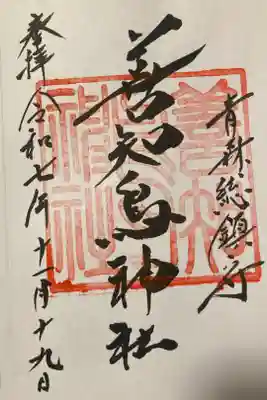 青森総鎮守
善知鳥神社
奉拝 令和七年十一月十九日